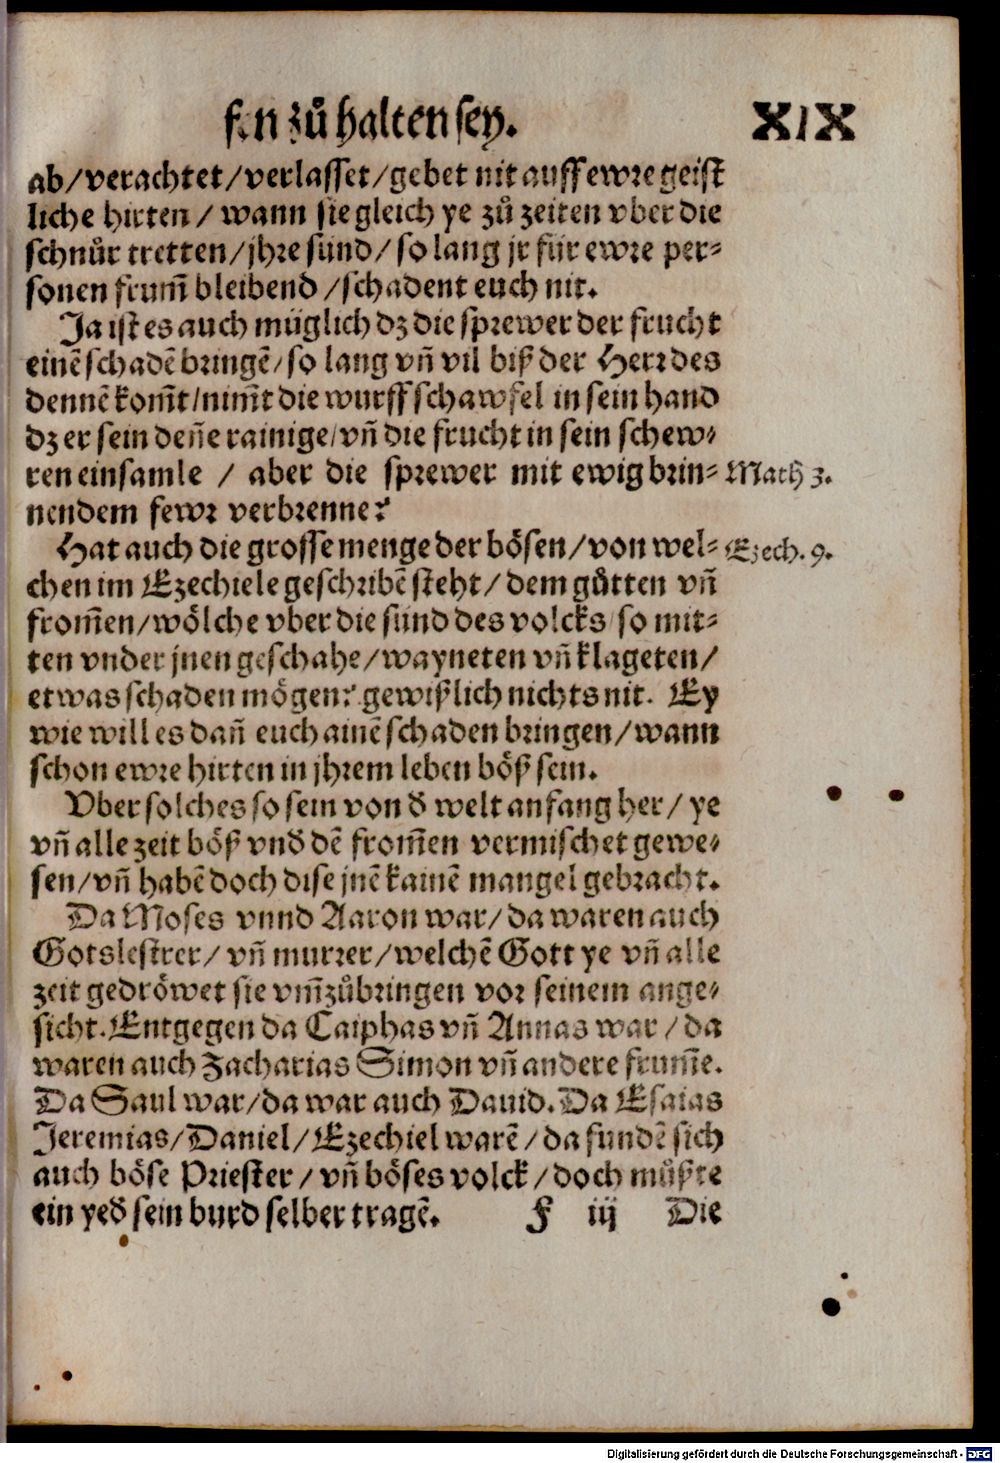 fen zů halten sey. XIX
ab/verachtet/verlasset/gebet nit auff ewre geist
liche hirten / wann sie gleich ye zů zeiten vber die
schnůr tretten/jhre sünd/ so lang jr für ewre per⸗
sonen frum̃ bleibend /schadent euch nit.
Ja ist es auch müglich dz die sprewer der frucht
einẽ schadẽ bringẽ/so lang vñ vil biß der Herr des
dennẽ kom̃t/nim̃t die wurffschawfel in sein hand
dz er sein deñe rainige/vñ die frucht in sein schew⸗
ren einsamle / aber die sprewer mit ewig brin⸗ Math 3.
nendem fewr verbrenne?
Hat auch die grosse menge der bösen/von wel⸗ Ezech. 9.
chen im Ezechiele geschribẽ steht/ dem gůtten vñ
from̃en/wölche vber die sünd des volcks/so mit⸗
ten vnder jnen geschahe/wayneten vñ klageten/
etwas schaden mögen? gewißlich nichts nit. Ey
wie will es dañ euch ainẽ schaden bringen/wann
schon ewre hirten in jhrem leben böß sein.
Vber solches so sein von d̄ welt anfang her/ ye
vñ alle zeit böß vnd̄ dẽ from̃en vermischet gewe⸗
sen/vñ habẽ doch dise jnẽ kainẽ mangel gebracht.
Da Moses vnnd Aaron war/da waren auch
Gotslestrer/ vñ murrer/welchẽ Gott ye vñ alle
zeit gedröwet sie vm̃zůbringen vor seinem ange⸗
sicht. Entgegen da Caiphas vñ Annas war / da
waren auch Zacharias Simon vñ andere frum̃e.
Da Saul war/da war auch Dauid. Da Esaias
Jeremias/Daniel/Ezechiel warẽ/da fundẽ sich
auch böse Priester/vñ böses volck/doch můßte
ein yed̄ sein burd selber tragẽ. F iij Die
Digitalisierung gefördert durch die Deutsche Forschungsgemeinschaft - DFG